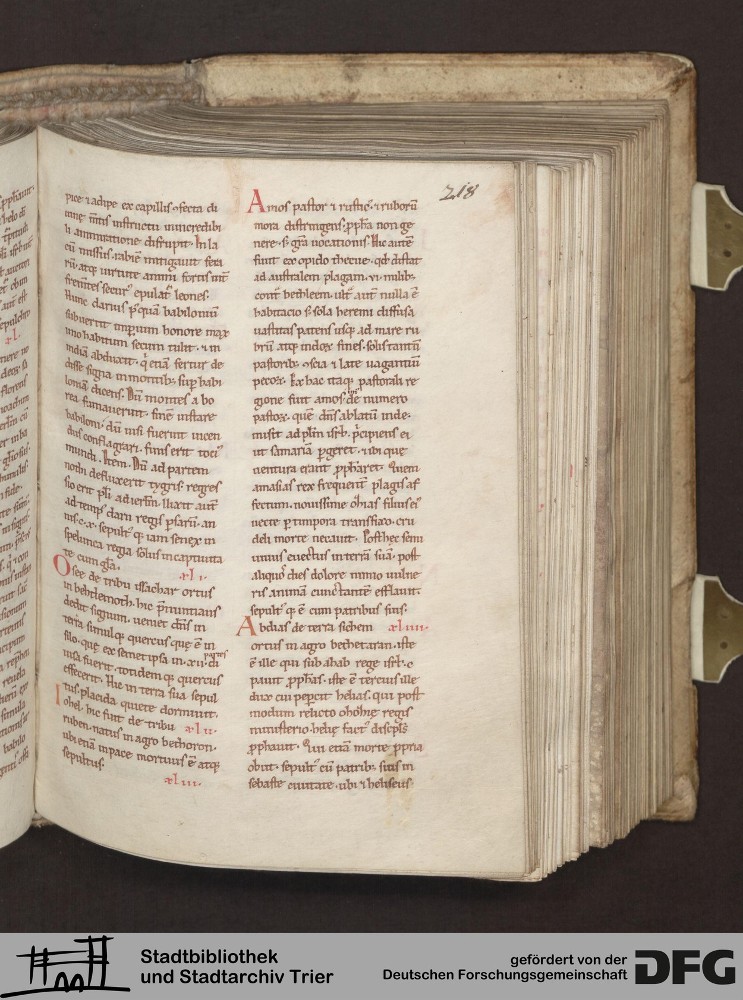 218
pice ⁊ adipe ex capillis ꝯfecta di
li ammiratione disrupit. In la
cū missus. rabiē mitigauit fera
rū. atq; uirtute animi fortis int̄
frem̄tes secur᷒ epulat᷒ leones.
Hunc darius p᷒quā babiloniū
subuertit imperium honore max
imo habitum secum tulit. ⁊ in
mediā abduxit. q̇ etiā fertur de
disse signa in montib; sup babi
loniā dicens. Dū montes a bo
rea fumauerint. finē instare
babiloni. dū uisi fuerint incen
dio conflagrari. finis erit toci᷒
mundi. Item. Dū ad partem
nothi defluxerit tygris. regres
sio erit pli ad ierl̄m. Uixit aut̄
ad temp᷒ darii regis psarū. an
nis. c.x. sepult᷒ q; iam senex in
spelunca regia solus in captiuita
te cum gl̄a.
xli.
Osee de tribu ysachar ortus
in bethlemoth. hic p̄nuntians
dedit signum. ueniet dn̄s in
terra simul q; quercus quę ē in
silo. quę ex semet ipsa in .xii. di
partes
uisa fuerit. totidem q; quercus
effecerit. Hic in terra sua sepul
tus placida quiete dormiuit.
Iohel. hic fuit de tribu xlii.
ruben. natus in agro bethoron.
ubi etiā in pace mortuus ē atq;
sepultus.
xliii.
Amos pastor ⁊ rustic᷒. ⁊ ruborū
mora distringens. ꝓpha non ge
nere. s; gr̄a uocationis. Hic autē
fuit ex opido thecue. qd distat
ad australem plagam. vi. milib;
cont᷒ bethleem. ult᷒ aut̄ nulla ē
habitacio s; sola heremi diffusa
uastitas patens usq; ad mare ru
brū. atq; indoꝝ fines. solis tantū
pastorib; ꝯscia ⁊ late uagantiū
pecoꝝ. Ex hac itaq; pastorali re
gione fuit amos de numero
pastoꝝ. quē dn̄s ablatū inde.
misit ad plm̄ isrl̄. p̄cipiens ei
ut samariā ꝑgeret. ⁊ ibi quę
uentura erant ꝓpharet. Quem
amasias rex frequent̄ plagis af
fectum. nouissime ohias filius ei᷒
uecte ꝑ timpora transfixo. cru
deli morte necauit. Posthęc semi
uiuus euectus in terrā suā. post
aliquod dies dolore nimio uulne
ris animā cunctante efflauit.
sepult᷒ q; ē cum patribus suis.
Abdias de terra sichem xliiii.
ortus in agro bethetaran. iste
ē ille qui sub ahab rege isrl̄. o
pauit ꝓphas. iste ē tercius ille
dux cui pepcit helias. qui post
modum relicto ohohię regis
ministerio. helię fact᷒ discipls
ꝓphauit. Qui etiā morte ꝓpria
obiit. sepult᷒ cū patrib; suis in
sebaste ciuitate. ubi ⁊ heliseus
Stadtbibliothek
und Stadtarchiv Trier
gefördert von der
Deutschen Forschungsgemeinschaft
DFG